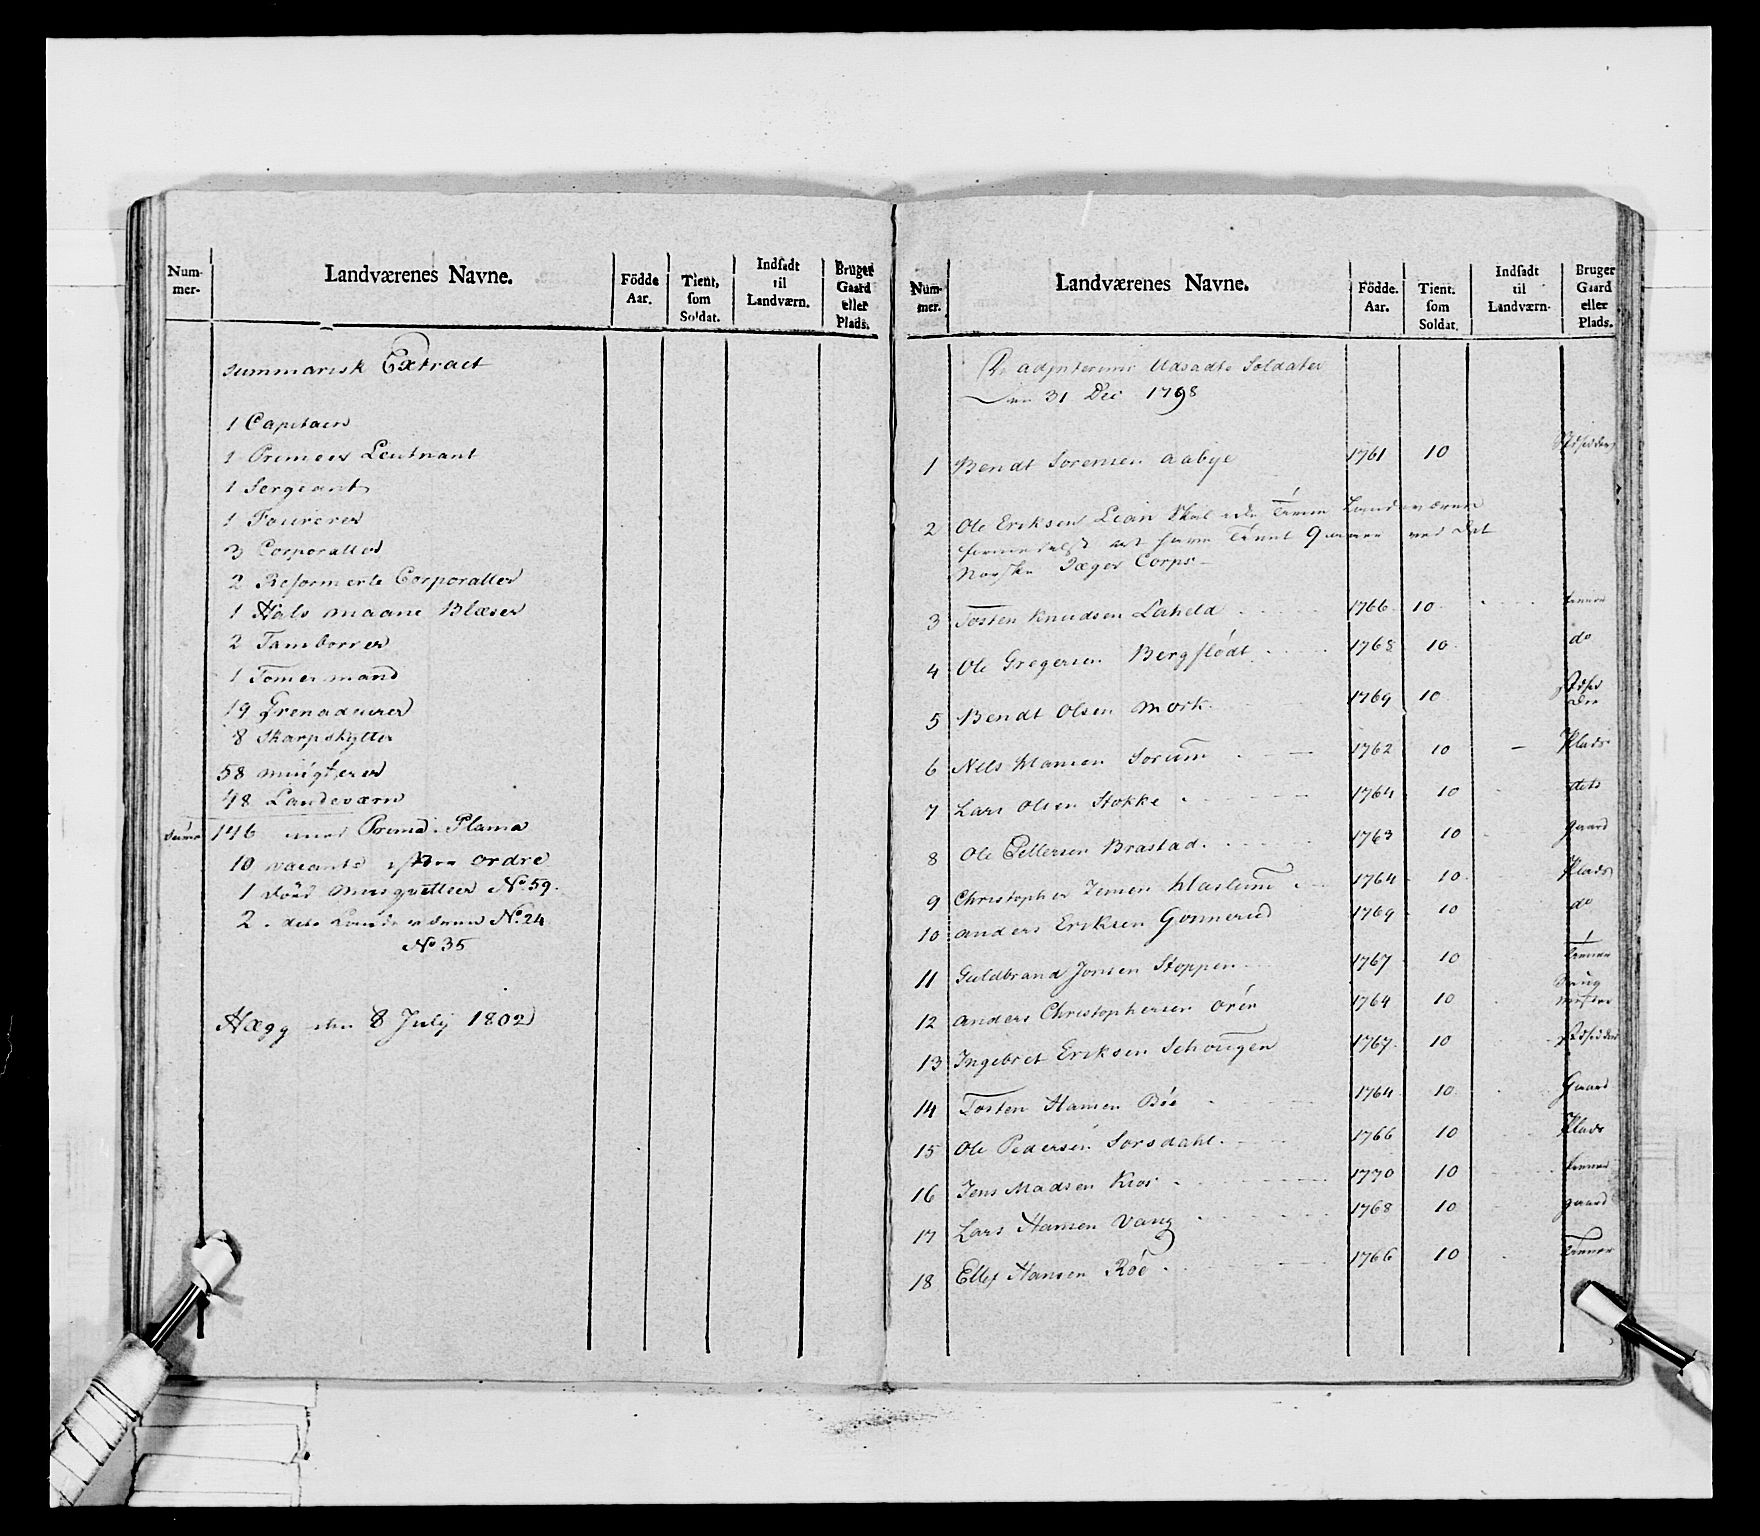 Num-
mer-
Landværenes Navne.
Födde
Aar.
Tient,
som
Soldat.
Indsadt
til
Landværn.
Bruger
Gaard
eller
Plads.
summarisk Extract
1 Capitain
1 Premier Leutnant
1 Sergeant
1 Fourerer
3 Corporaller
2 Reformerte Corporaller
1 Hals maane Blæser
2 Tamborrer
1 Tomermand
19 Grenaderer
8 Skarpskytter
58
48 Landeværn
Suma 146 Premd. Plama
10 vacante ordre
1 Död Musqvetteer No. 59.
2 No. 24
No 35
Hægg den 8 July 1802
Num-
mer.
Landværenes Navne.
Födde.
Aar.
Tient.
som
Soldat.
Indsadt
til
Landværn-
Bruger
Gaard
eller
Plads.
Udsadte Soldater
31 Dec 1798
1 Bendt Sorensen Aabye 1761 10
2 Ole Eriksen Lian Skal
Tient 9 ved det
Norske Jæger Corps
3 Tosten Knudsen Laheld 1766 10 tienner
4 Ole Gregersen Bergflödt 1768 10 do
5 Bendt Olsen Mork 1769 10
6 Nels Hansen Sorum 1762 10 Plads
7 Lars Olsen Stokke 1764 10 dito
8 Ole Pettersen Brastad 1763 10 gaard
9 Christopher Jensen Haslum 1764 10 Plads
10 Anders Eriksen Gonnerud 1769 10 do
11 Guldbrand Jonsen Stoppen 1767 10 tienner
12 Anders Christophersen Oren 1764 10
13 Ingebret Eriksen Schougen 1767 10
14 Tosten Hansen Böe 1764 10 Gaard
15 Ole Pedersen Sorsdahl 1766 10 Plads
16 Jens Madsen Kios 1770 10 tienner
17 Lars Hansen Vang 1768 10 gaard
18 Ellef Hansen Röe 1766 10 tienner